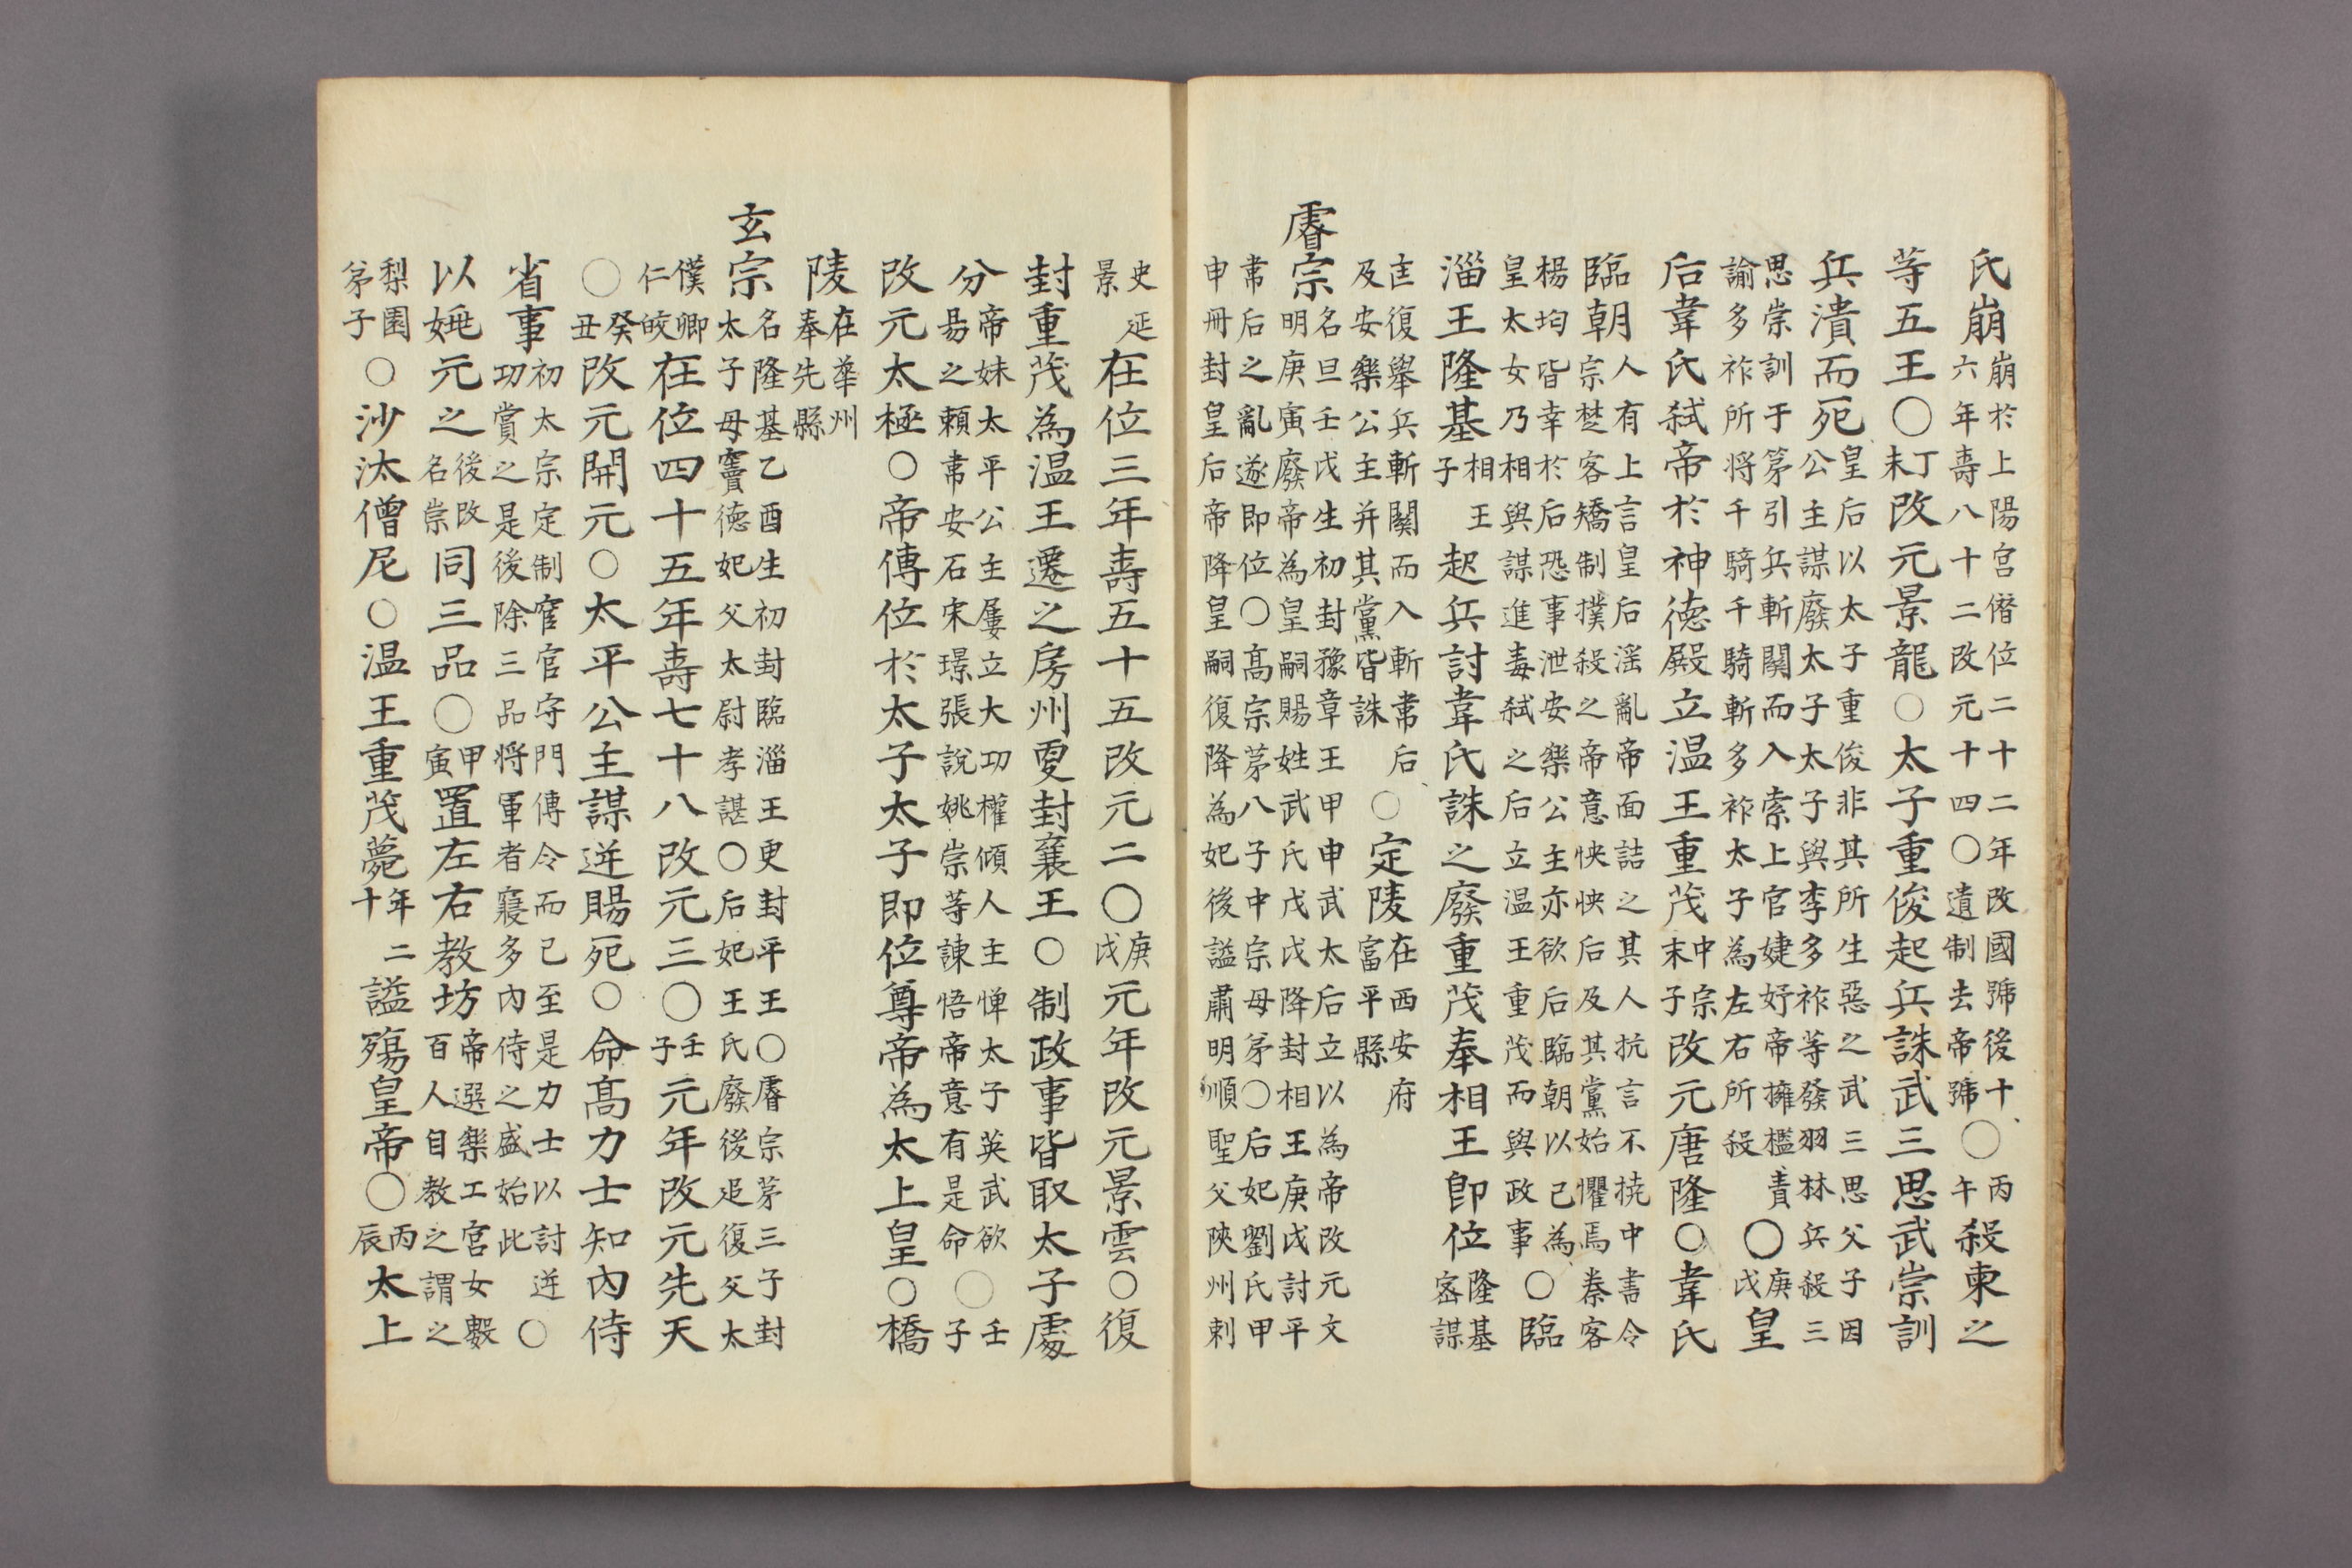 氏崩崩於上陽宮僭位二十二年改國號後十六年壽八十二改元十四〇遺制去帝號〇丙午殺柬之
等五王〇丁未改元景龍〇太子重俊起兵誅武三思武崇訓
兵潰而死皇后以太子重俊非其所生惡之武三思父子因公主謀廢太子太子與李多祚等發羽林兵殺三
思崇訓于苐引兵斬関而入索上官婕妤帝擁檻責諭多祚所将千騎千騎斬多祚太子為左右所殺〇庚戌皇
后韋氏弑帝於神德殿立温王重茂中宗末子改元唐隆〇韋氏
臨朝人有上言皇后淫亂帝面詰之其人抗言不撓中書令宗楚客矯制撲殺之帝意怏怏后及其黨始懼焉秦客
楊均皆幸於后恐事泄安樂公主亦欲后臨朝以己為皇太女乃相與謀進毒弑之后立温王重茂而與政事〇臨
淄王隆基相王子起兵討韋氏誅之廢重茂奉相王即位隆基密謀
匡復舉兵斬関而入斬韋后及安樂公主并其黨皆誅〇定陵在西安府富平縣
睿宗名旦壬戌生初封豫章王甲申武太后立以為帝改元文明庚寅廢帝為皇嗣賜姓武氏戊戌降封相王庚戌討平
韋后之亂遂即位〇高宗苐八子中宗母弟〇后妃劉氏甲申冊封皇后帝降皇嗣復降為妃後謚肅明順聖父陝州刺
史延景在位三年壽五十五改元二〇庚戌元年改元景雲〇復
封重茂為温王遷之房州更封襄王〇制政事皆取太子處
分帝妹太平公主屢立大功權傾人主憚太子英武欲易之賴韋安石宋璟張說姚崇等諫悟帝意有是命〇壬子
改元太極〇帝傳位於太子太子即位尊帝為太上皇〇橋
陵在華州奉先縣
玄宗名隆基乙酉生初封臨淄王更封平王〇睿宗苐三子封太子母竇德妃父太尉孝諶〇后妃王氏廢後追復父太
僕卿仁皎在位四十五年壽七十八改元三〇壬子元年改元先天
〇癸丑改元開元〇太平公主謀逆賜死〇命高力士知內侍
省事初太宗定制宦官守門傳令而已至是力士以討逆功賞之是後除三品将軍者寢多內侍之盛始此〇
以姚元之後改名崇同三品〇甲寅置左右教坊帝選樂工宮女數百人自教之謂之
梨園弟子〇沙汰僧尼〇温王重茂薨年二十謚殤皇帝〇丙辰太上